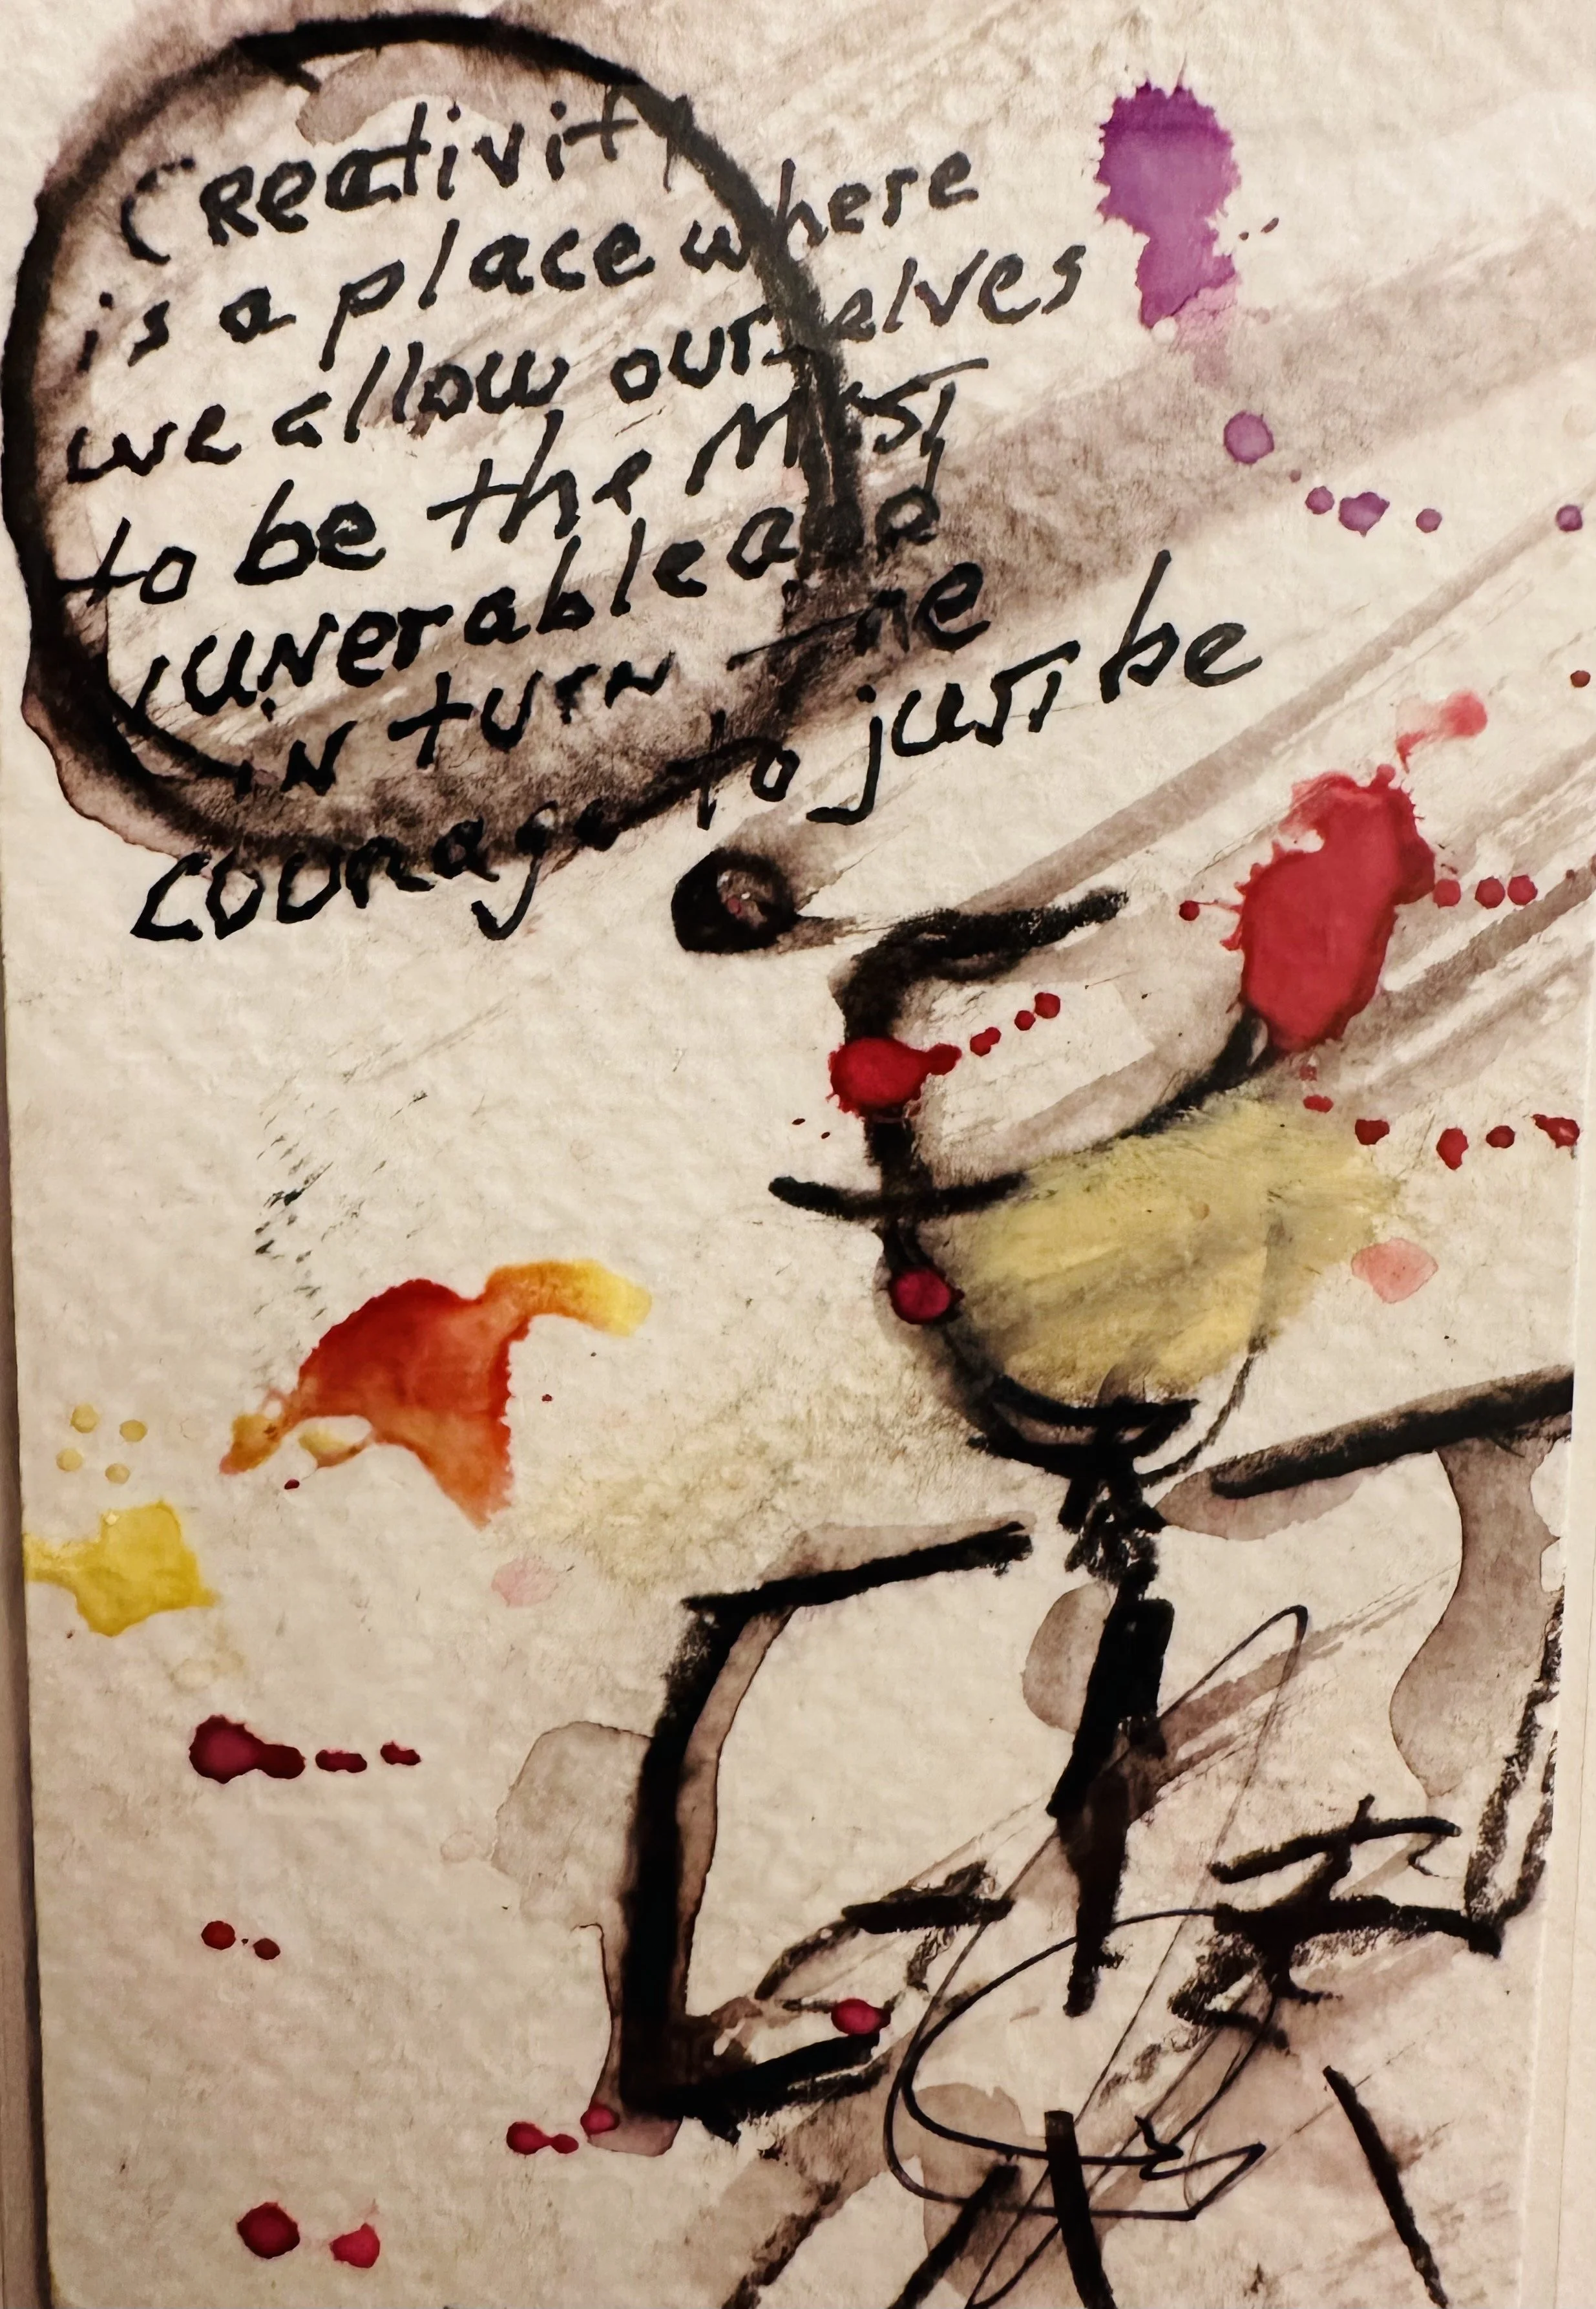 CReativity
is a place where
we allow ourselves
to be the MOST
vuNerable and
iN tuRN the
couRage to just be